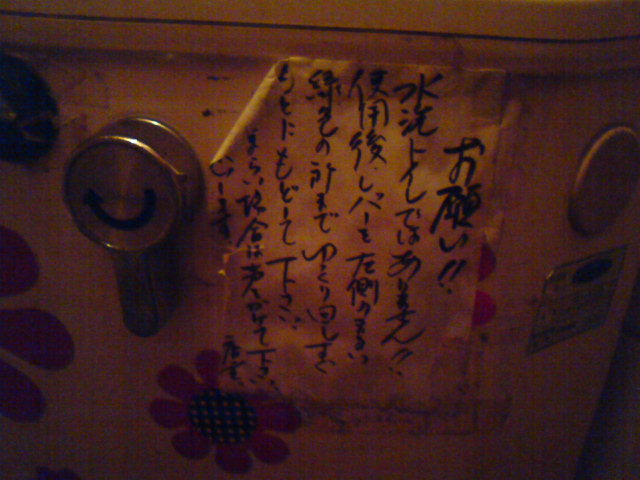 お願い!!
水洗トイレではありません!!
使用後、レバーを左側のまるい
緑色の所までゆっくり回して
もとにもどして下さい。
まらない場合は声をかけて下さい
店主